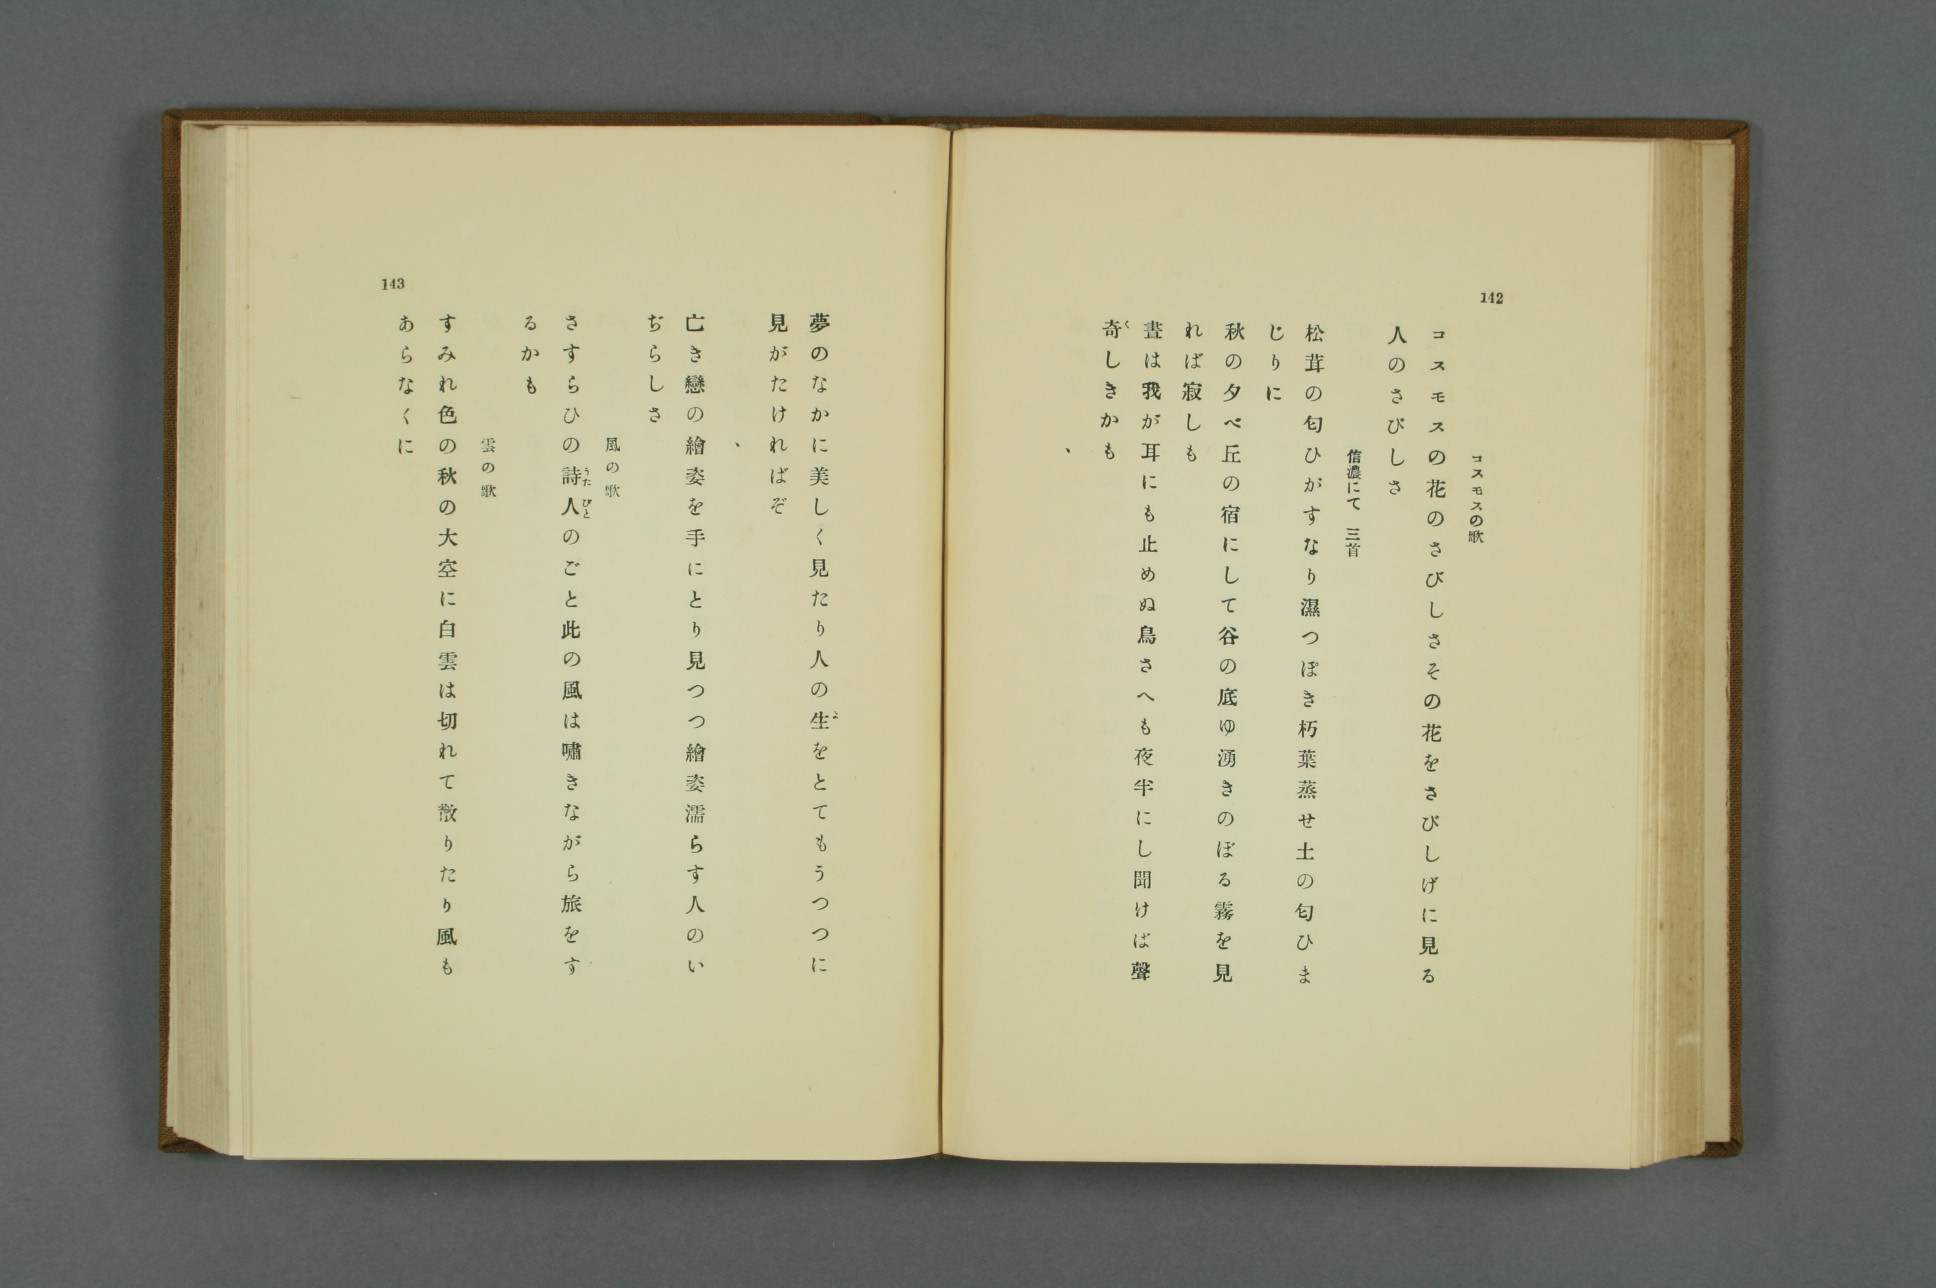 142
コスモスの歌
コスモスの花のさびしさその花をさびしげに見る
人のさびしさ
信濃にて　三首
松茸の匂ひがすなり濕つぽき朽葉蒸せ土の匂ひま
じりに
秋の夕べ丘の宿にして谷の底ゆ湧きのぼる霧を見
れば寂しも
晝は我が耳にも止めぬ鳥さへも夜半にし聞けば聲
奇しきかも
、
夢のなかに美しく見たり人の生をとてもうつつに
見がたければぞ
、
亡き戀の繪姿を手にとり見つつ繪姿濡らす人のい
ぢらしさ
風の歌
さすらひの詩人のごと此の風は嘯きながら旅をす
るかも
雲の歌
すみれ色の秋の大空に白雲は切れて散りたり風も
あらなくに
143